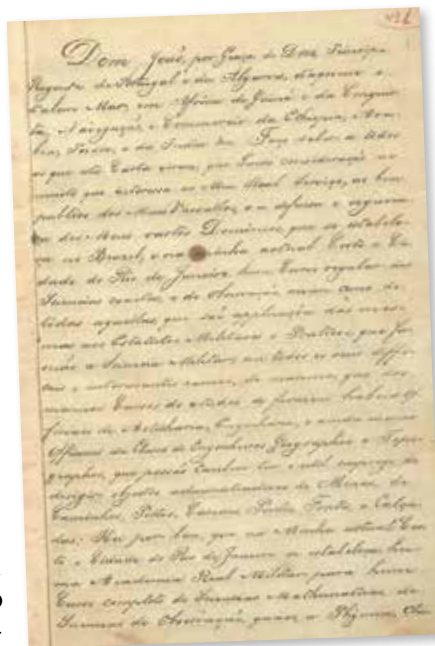 Nº 1
Dom João, por Graça de Deos Principe
Regente de Portugal e dos Algarves, daquem e
dalem Mar, em Africa de Guiné e da Conquis-
ta, Navegação e Commercio da Ethiopia, Ara-
bia, Persia, e da India &a Faço saber a todos
os que esta Carta virem, que tendo consideração ao
muito que interessa ao Meu Real Serviço, ao bem
publico dos Meus Vassallos, e a defensa e segurança
dos Meus vastos Dominios, que se estabele-
ça no Brazil, e na minha actual Corte e Ci-
dade do Rio de Janeiro hum Curso regular das
Sciencias exactas, e de Observação, assim como de
todas aquellas, que são applicação das mes-
mas aos Estudos Militares e Praticos, que for-
mão a Sciencia Militar em todos os seus diffi-
ceis e interessantes ramos, de maneira, que dos
mesmos Cursos de estudos se formem habeis Of-
ficiaes de Artilharia, Engenharia, e ainda mesmo
Officiaes da Classe de Engenheiros Geographos e Topo-
graphos, que possão tambem ter o util emprego de
dirigir objectos administrativos de Minas, de
Caminhos, Portos, Canaes, Pontes, Fontes, e Calça-
das: Hei por bem, que na Minha actual Cor-
te e Cidade do Rio de Janeiro se estabeleça hu-
ma Academia Real Militar para hum
Curso completo de Sciencias Mathematicas, de
Sciencias de Observação, quaes a Physica, Chi-